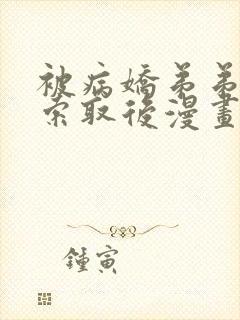 被病嬌弟弟
索取後漫畫
鍾寅